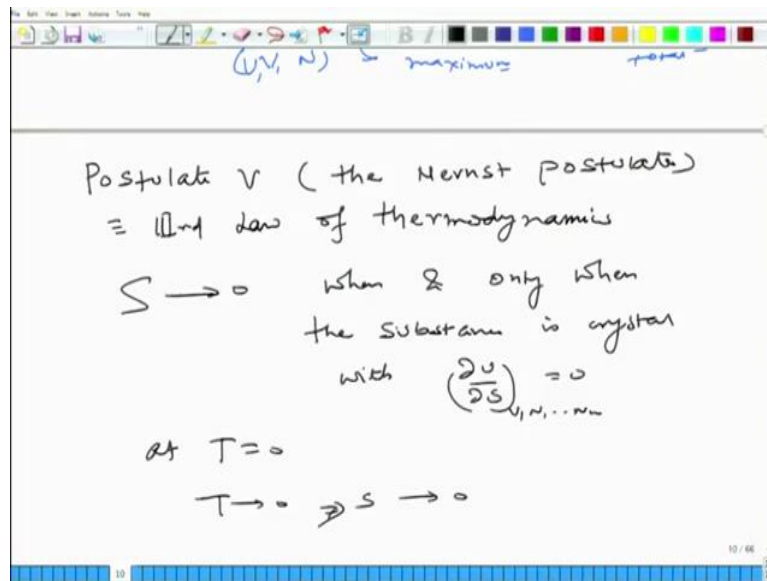 File Edit View Insert Actions Tools Help
(U, V, N) maximum total
Postulate V ( the Nernst postulate)
≡ IIIrd Law of thermodynamics
S → 0 when & only when
the substance is crystal
with (∂U/∂S)V,N,...Nm = 0
at T = 0
T → 0 ⇒ S → 0
10 / 66
10